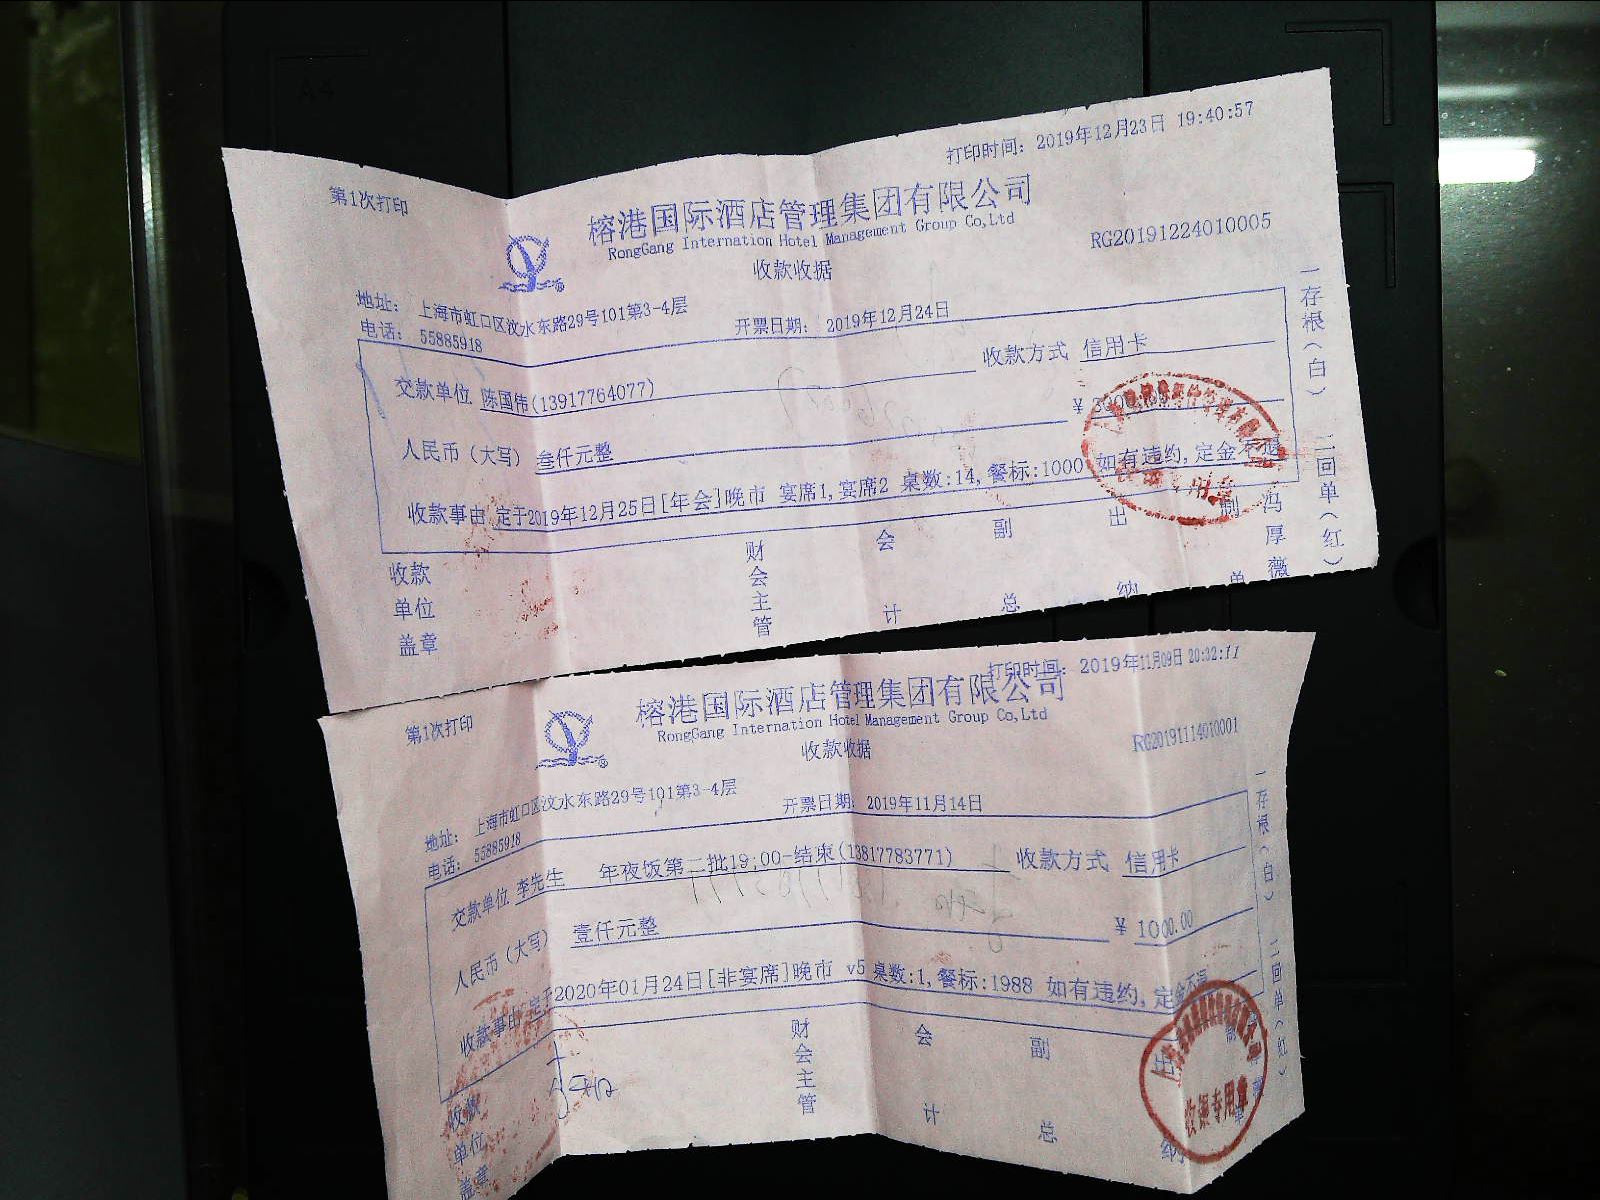 A4
打印时间: 2019年12月23日 19:40:57
第1次打印
榕港国际酒店管理集团有限公司
RongGang Internation Hotel Management Group Co,Ltd
RG20191224010005
收款收据
地址: 上海市虹口区汶水东路29号101第3-4层
电话: 55885918
开票日期: 2019年12月24日
交款单位 陈国伟(13917764077)
收款方式 信用卡
人民币(大写) 叁仟元整
¥
收款事由 定于2019年12月25日[年会]晚市 宴席1,宴席2 桌数:14,餐标:1000 如有违约,定金不退
一存根(白) 二回单(红)
收款单位盖章
财会主管
会计
副总
出纳
制单
冯厚薇
打印时间: 2019年11月09日 20:32:11
第1次打印
榕港国际酒店管理集团有限公司
RongGang Internation Hotel Management Group Co,Ltd
RG20191114010001
收款收据
地址: 上海市虹口区汶水东路29号101第3-4层
电话: 55885918
开票日期: 2019年11月14日
交款单位 李先生 年夜饭第二批19:00-结束(13817783771)
收款方式 信用卡
人民币(大写) 壹仟元整
¥ 1000.00
收款事由 定于2020年01月24日[非宴席]晚市 v5 桌数:1,餐标:1988 如有违约,定金不退
一存根(白) 二回单(红)
收款单位盖章
财会主管
会计
副总
出纳
收银专用章